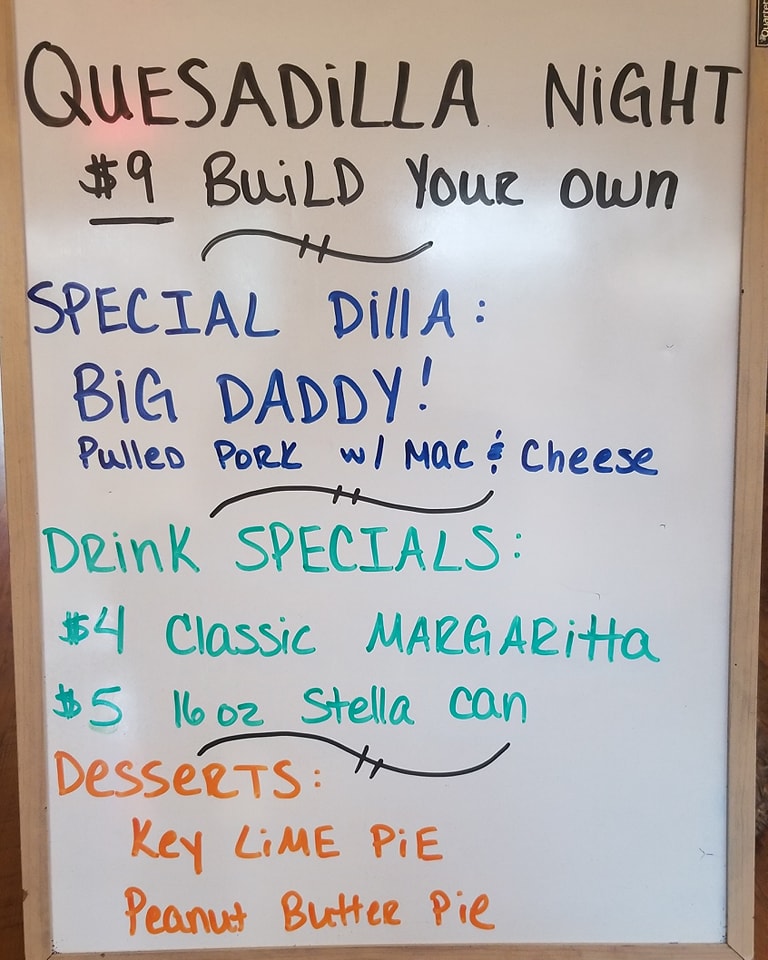 QUESADiLLA NiGHT
$9 BuiLD Your own
SPECIAL DillA:
BiG DADDY!
Pulled Pork w/ Mac & Cheese
DRinK SPECIALS:
$4 Classic MARGARitta
$5 16 oz Stella can
Desserts:
Key LiME PiE
Peanut Butter Pie
Quartet